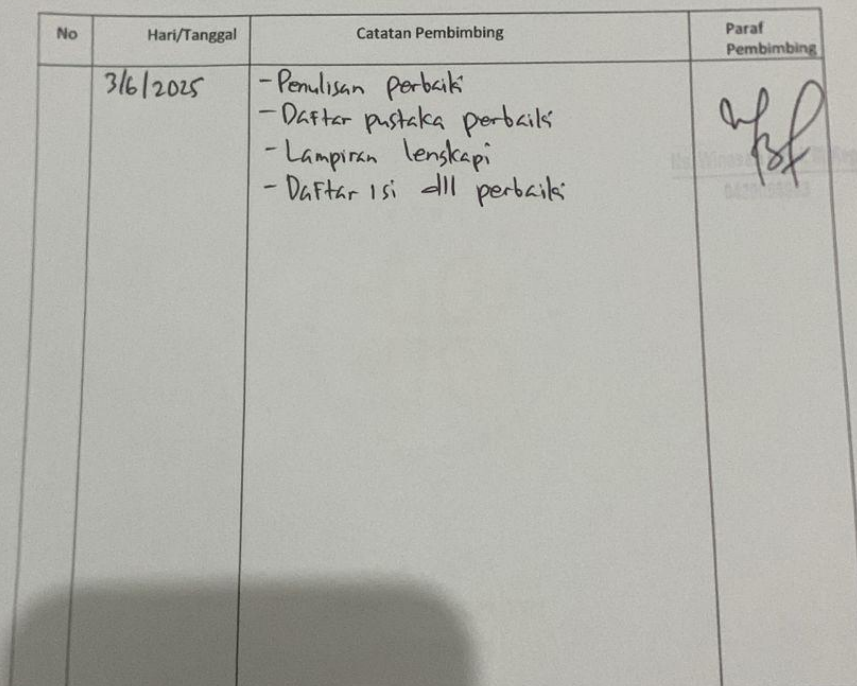 No Hari/Tanggal Catatan Pembimbing Paraf Pembimbing
3/6/2025 - Penulisan perbaiki
- Daftar pustaka perbaiki
- Lampiran lengkapi
- Daftar isi dll perbaiki